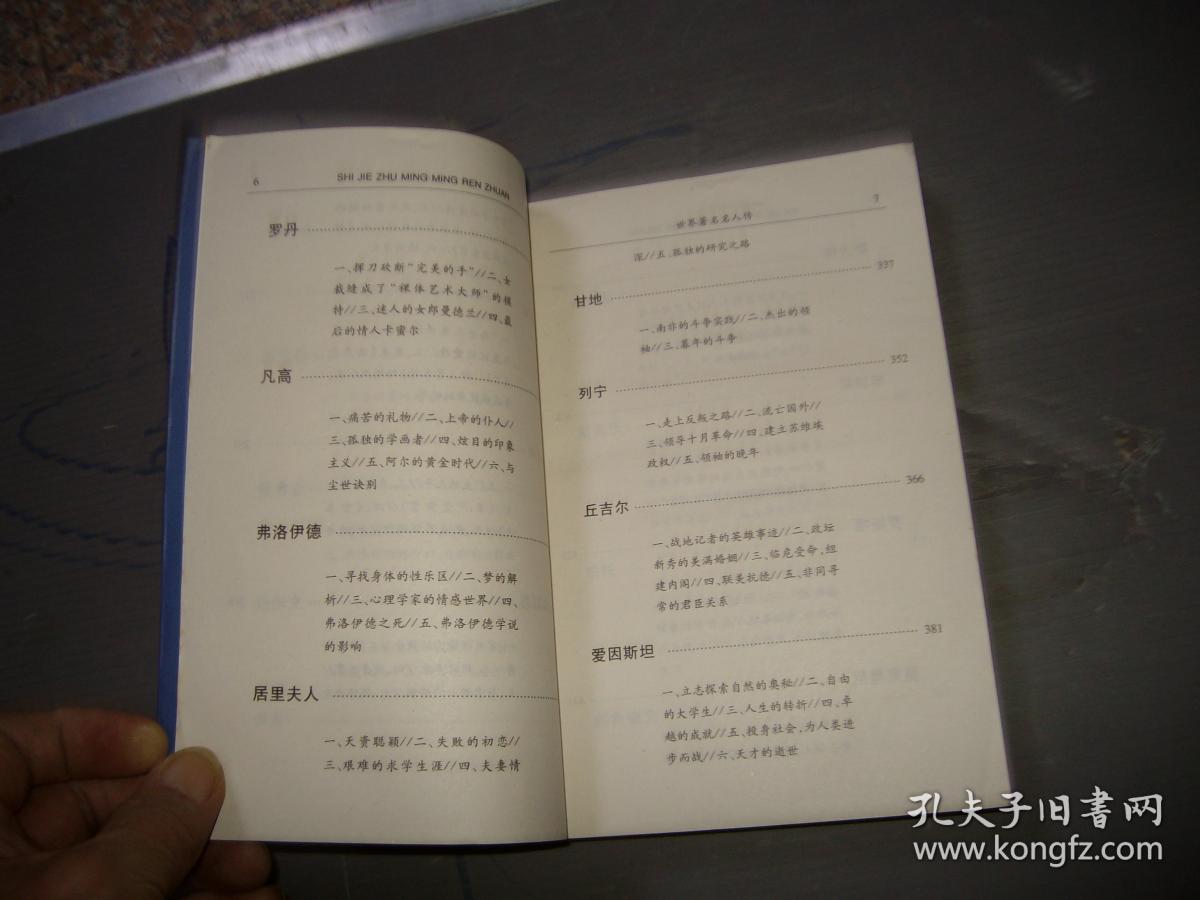 6 SHI JIE ZHU MING MING REN ZHUAN
罗丹
一、挥刀砍断“完美的手”//二、女
裁缝成了“裸体艺术大师”的模
特//三、迷人的女郎曼德兰//四、最
后的情人卡蜜尔
凡高
一、痛苦的礼物//二、上帝的仆人//
三、孤独的学画者//四、炫目的印象
主义//五、阿尔的黄金时代//六、与
尘世诀别
弗洛伊德
一、寻找身体的性乐区//二、梦的解
析//三、心理学家的情感世界//四、
弗洛伊德之死//五、弗洛伊德学说
的影响
居里夫人
一、天资聪颖//二、失败的初恋//
三、艰难的求学生涯//四、夫妻情
世界著名名人传 7
深//五、孤独的研究之路
甘地 337
一、南非的斗争实践//二、杰出的领
袖//三、暮年的斗争
列宁 352
一、走上反叛之路//二、流亡国外//
三、领导十月革命//四、建立苏维埃
政权//五、领袖的晚年
丘吉尔 366
一、战地记者的英雄事迹//二、政坛
新秀的美满婚姻//三、临危受命，组
建内阁//四、联美抗德//五、非同寻
常的君臣关系
爱因斯坦 381
一、立志探索自然的奥秘//二、自由
的大学生//三、人生的转折//四、卓
越的成就//五、投身社会，为人类进
步而战//六、天才的逝世
孔夫子旧书网
www.kongfz.com